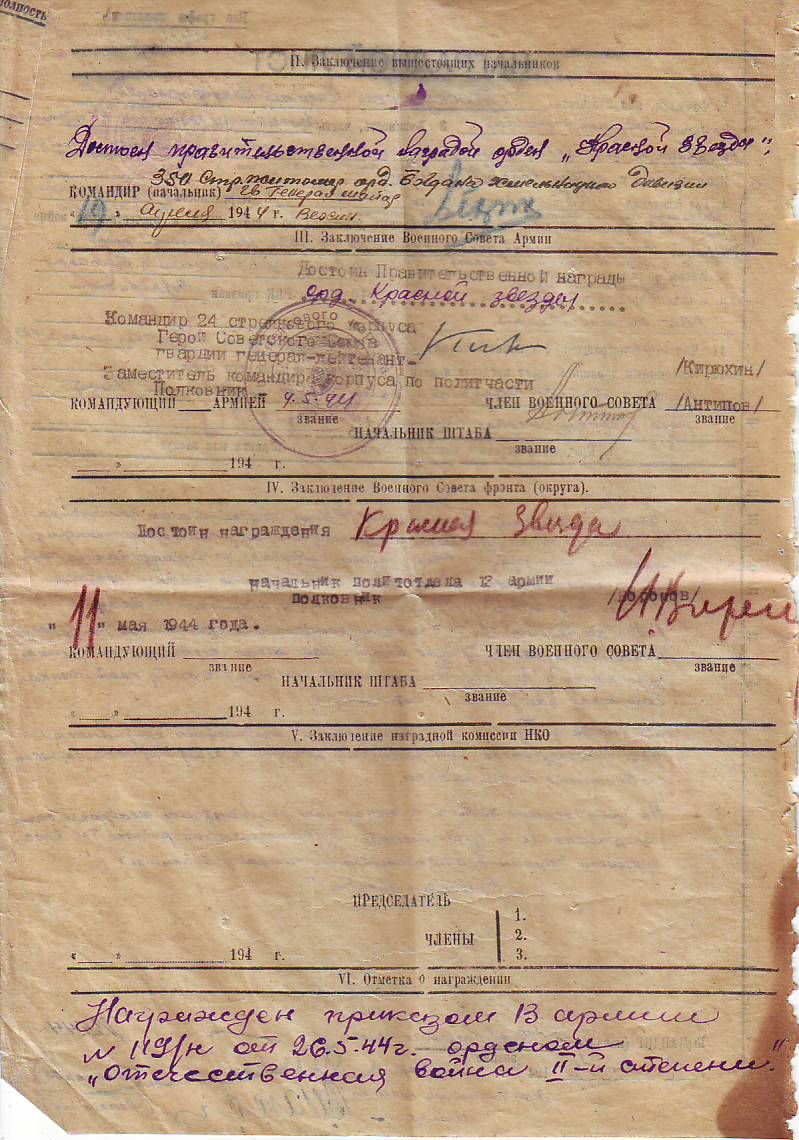 II. Заключение вышестоящих начальников
Достоен правительственной награды орден „Красной Звезды".
350 Стр. Житомир. орд. Богдана Хмельницкого Дивизии
КОМАНДИР (начальник) Гв. Генерал майор
"19" апреля 1944 г. Вехин
III. Заключение Военного Совета Армии
Достоин Правительственной награды
орд. Красной звезды
Командир 24 стрелкового корпуса
Герой Советского Союза
гвардии генерал-лейтенант /Кирюхин/
Заместитель командира корпуса по политчасти
Полковник /Антипов/
КОМАНДУЮЩИЙ АРМИЕЙ 4.5.44 ЧЛЕН ВОЕННОГО СОВЕТА
звание звание
НАЧАЛЬНИК ШТАБА
звание
" " 194 г.
IV. Заключение Военного Совета фронта (округа).
Достоин награждения Красная Звезда
Начальник политотдела 13 армии
Полковник /Воронов/
"11" мая 1944 года.
КОМАНДУЮЩИЙ ЧЛЕН ВОЕННОГО СОВЕТА
звание звание
НАЧАЛЬНИК ШТАБА
звание
" " 194 г.
V. Заключение наградной комиссии НКО
ПРЕДСЕДАТЕЛЬ
ЧЛЕНЫ
1.
2.
3.
" " 194 г.
VI. Отметка о награждении
Награжден приказом 13 армии
N 119/н от 26.5.44 г. орденом
„Отечественная война II-й степени."